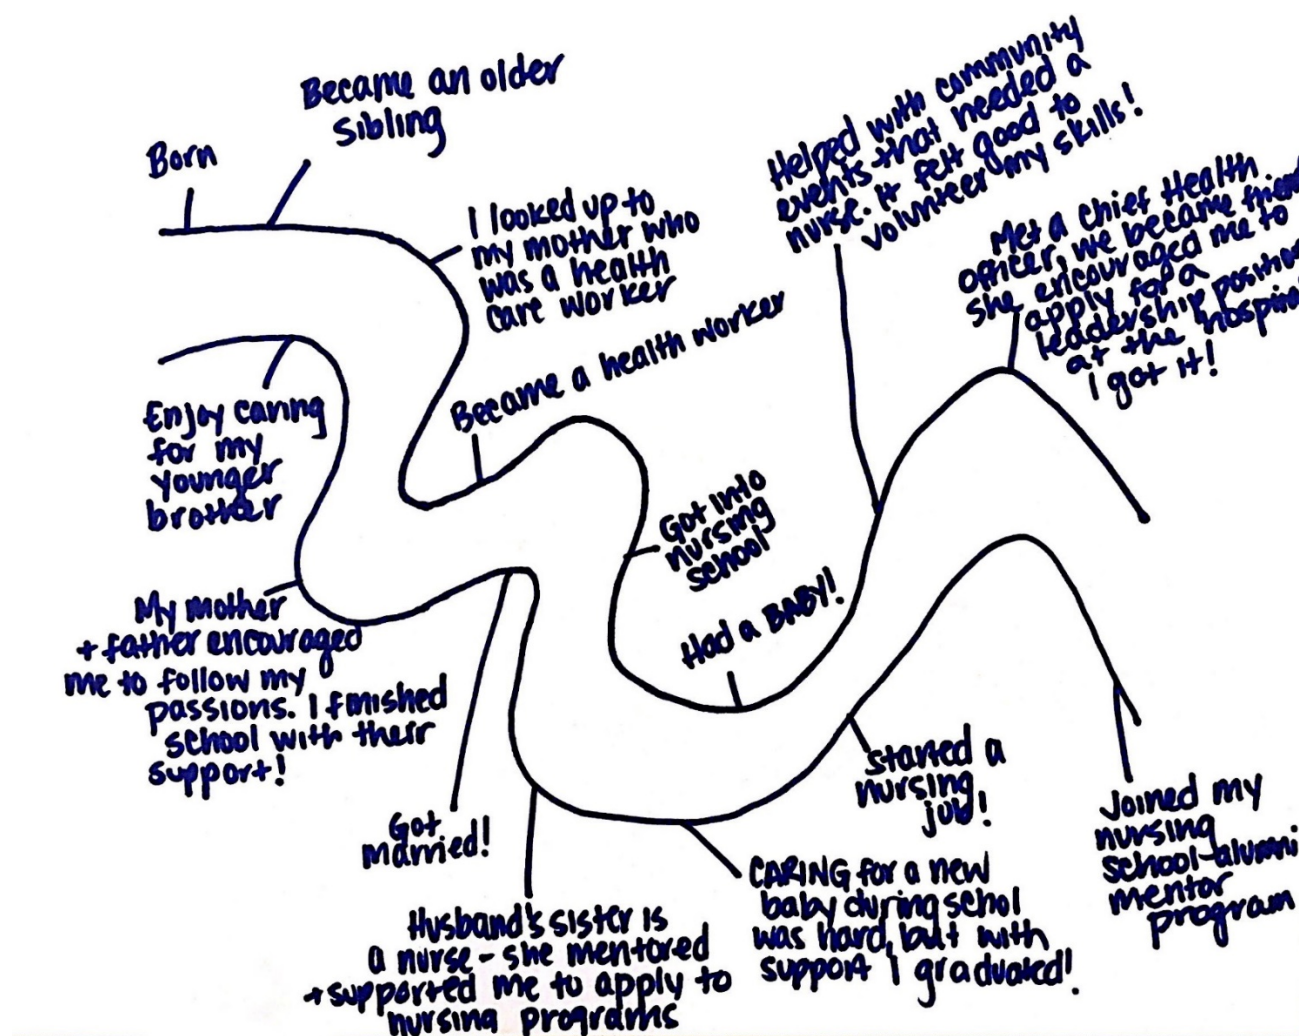 Born
Became an older
sibling
I looked up to
my mother who
was a health
care worker
Enjoy caring
for my
younger
brother
My mother
+ father encouraged
me to follow my
passions. I finished
school with their
support!
Became a health worker
Got
married!
Husband's sister is
a nurse - she mentored
+ supported me to apply to
nursing programs
Got into
nursing
school
Had a BABY!
CARING for a new
baby during schol
was hard, but with
support I graduated!
Started a
nursing
job!
Helped with community
events that needed a
nurse. It felt good to
volunteer my skills!
Met a Chief Health
officer, we became
she encouraged me to
apply for a
leadership position
at the
I got it!
Joined my
nursing
school-alumni
mentor
program